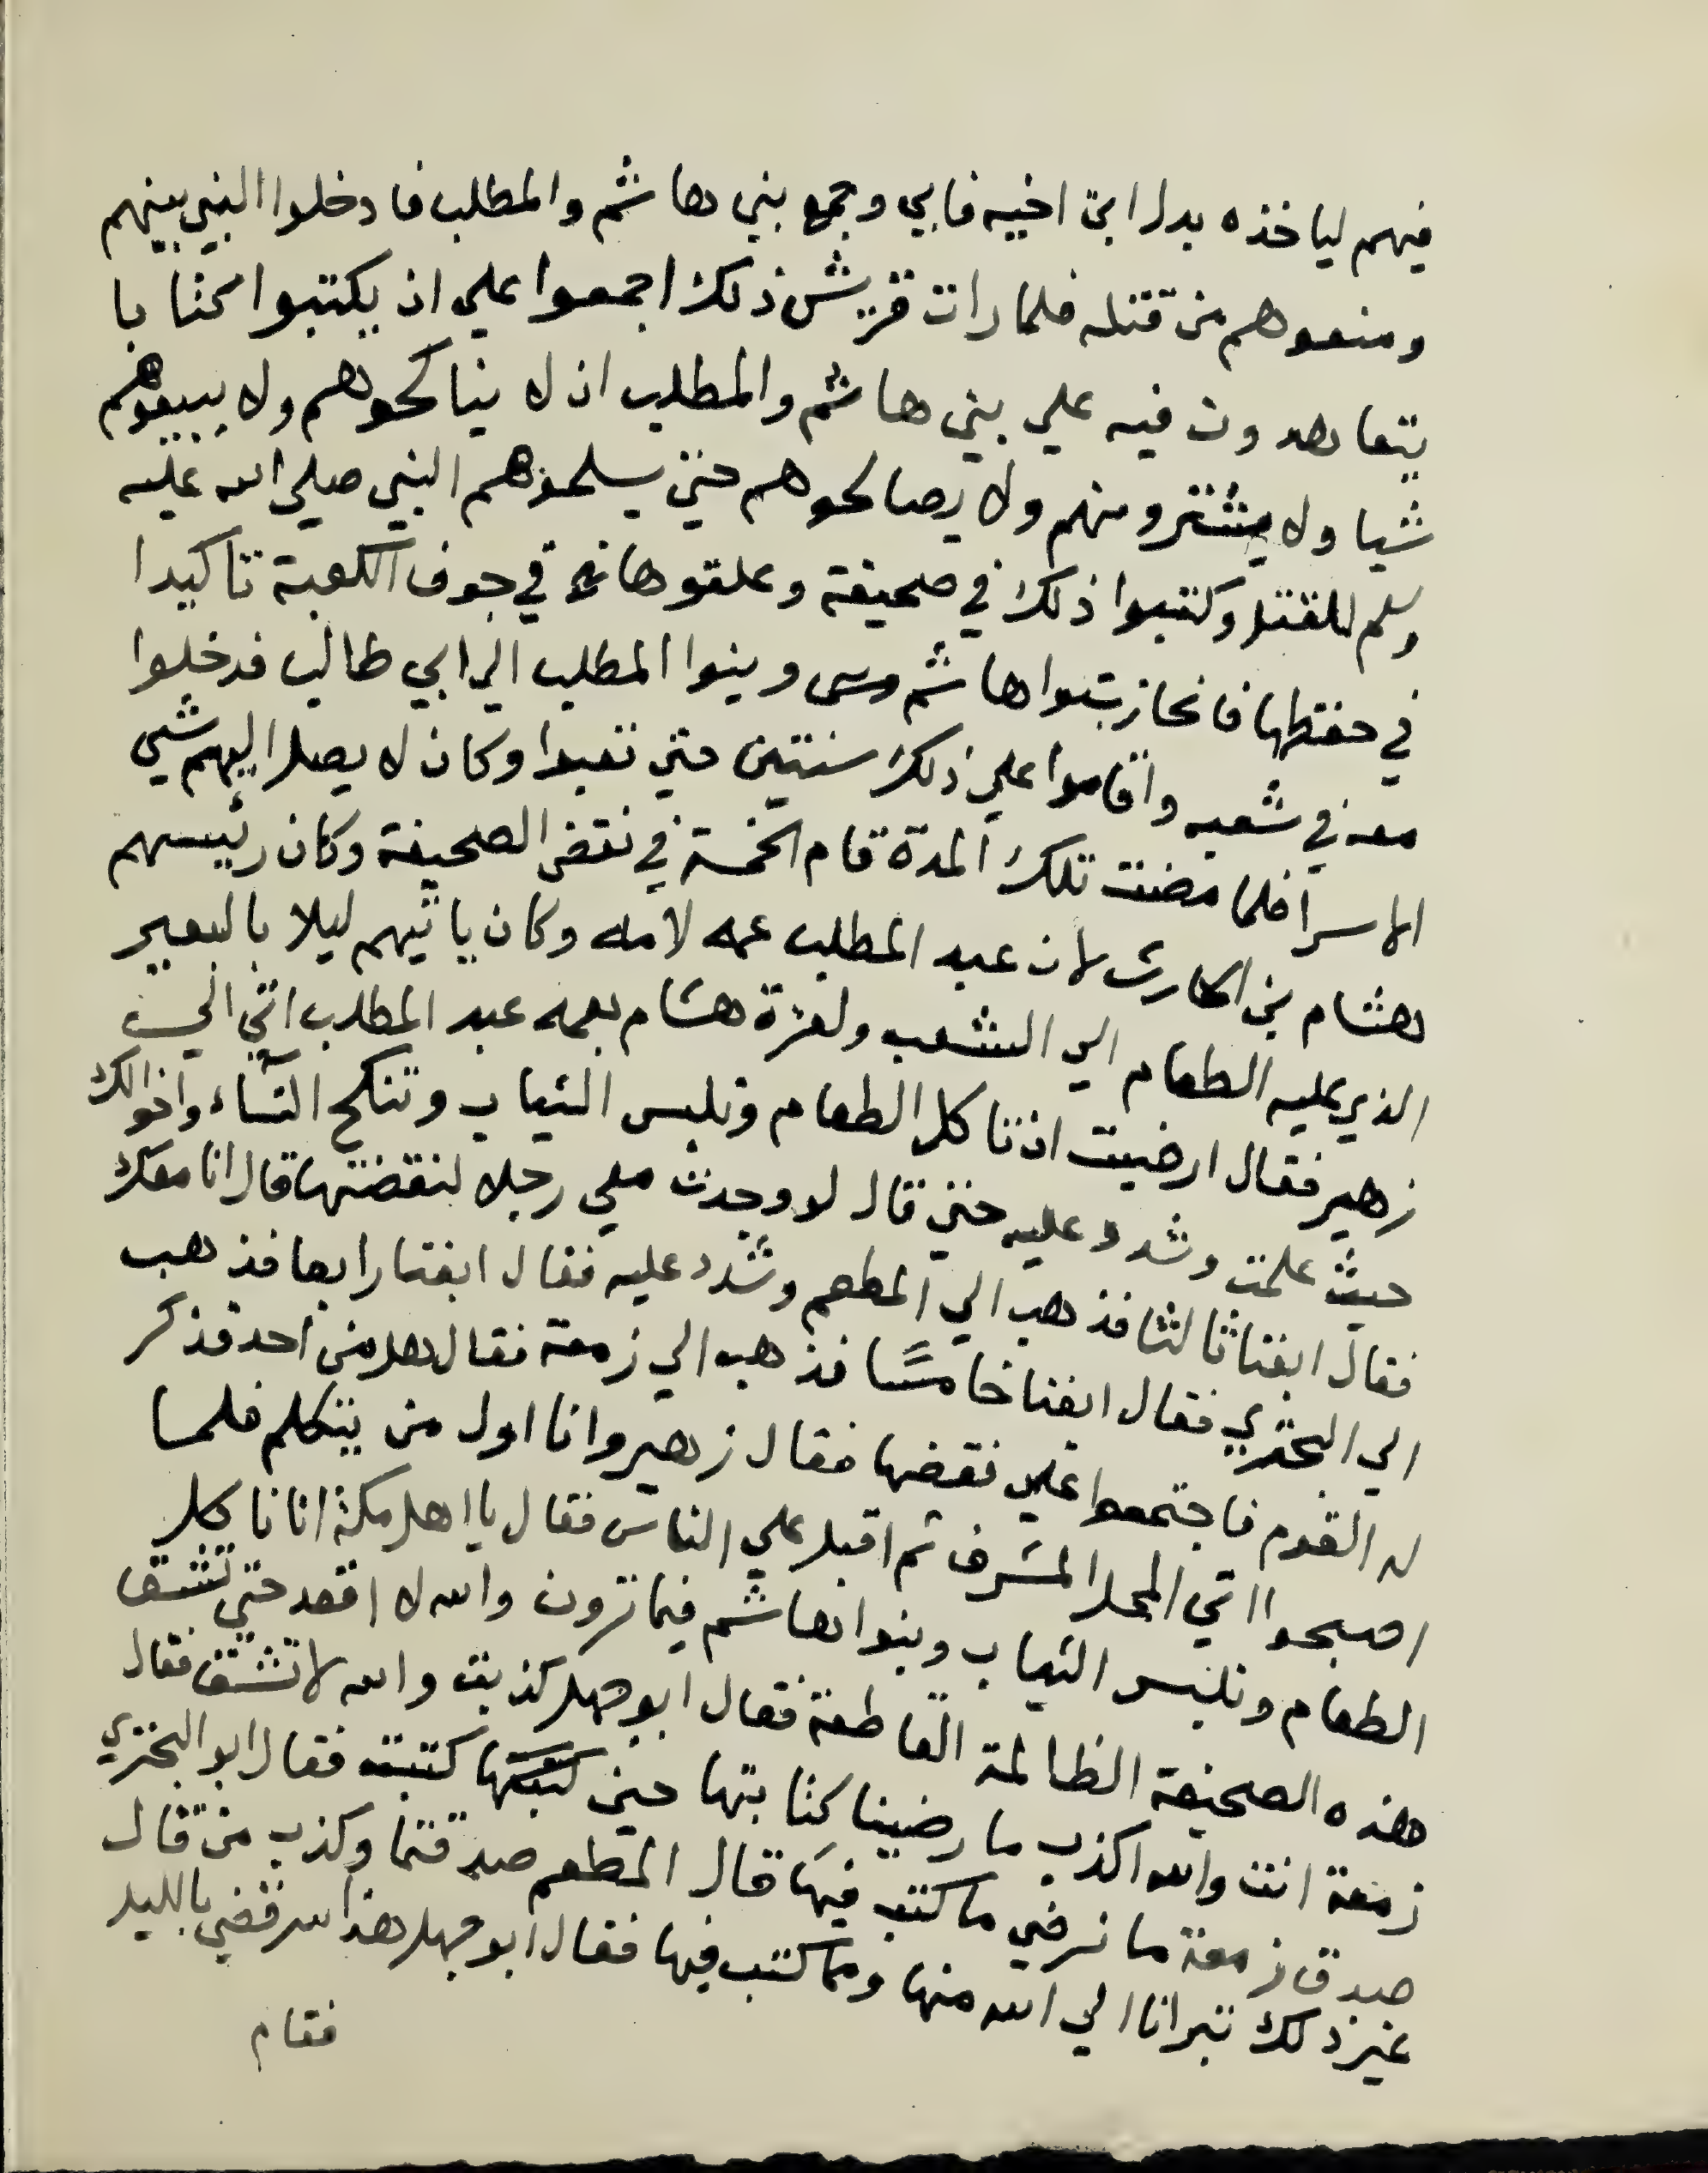 فيهم لياخذه بدل ابن اخيه فابي وجمع بني هاشم والمطلب فادخلوا النبي بينهم
ومنعوهم من قتله فلما رات قريش ذلك اجمعوا علي ان يكتبوا كتابا
يتعاهدون فيه علي بني هاشم والمطلب ان لا يناكحوهم ولا يبيعوهم
شيا ولا يشترو منهم ولا يصالحوهم حتي يسلموهم النبي صلي الله عليه
وسلم للقتل وكتبوا ذلك في صحيفة وعلقوها في جوف الكعبة تاكيدا
في حفظها فانحاز بنوا هاشم وبنوا المطلب الي ابي طالب فدخلوا
معه في شعبه واقاموا علي ذلك سنتين حتي تعبوا وكان لا يصل اليهم شي
الا سرا فلما مضت تلك المدة قام الخمسة في نقض الصحيفة وكان رئيسهم
هشام بن الحارث لان عبد المطلب عمه لامه وكان ياتيهم ليلا بالبعير
الذي عليه الطعام الي الشعب ولعزة هشام بعمه عبد المطلب اتي الي
زهير فقال ارضيت ان تاكل الطعام وتلبس الثياب وتنكح النساء واخوالك
حيث علمت وشدد عليه حتي قال لو وجدت معي رجلا لنقضتها قال انا معك
فقال ابغنا ثالثا فذهب الي المطعم وشدد عليه فقال ابغنا رابعا فذهب
الي البختري فقال ابغنا خامسا فذهب الي زمعة فقال هل من احد فذكر
له القوم فاجتمعوا علي نقضها فقال زهير وانا اول من يتكلم فلما
اصبحوا اتي المحل المشرف ثم اقبل علي الناس فقال يا اهل مكة انا ناكل
الطعام ونلبس الثياب وبنوا هاشم فيما ترون والله لا اقعد حتي تشق
هذه الصحيفة الظالمة القاطعة فقال ابو جهل كذبت والله لا تشق فقال
زمعة انت والله اكذب ما رضينا كتابتها حين كتبت فقال ابو البختري
صدق زمعة ما نرضي ما كتب فيها قال المطعم صدقتما وكذب من قال
غير ذلك تبرانا الي الله منها ومما كتب فيها فقال ابو جهل هذا امر قضي بالليل
فقام